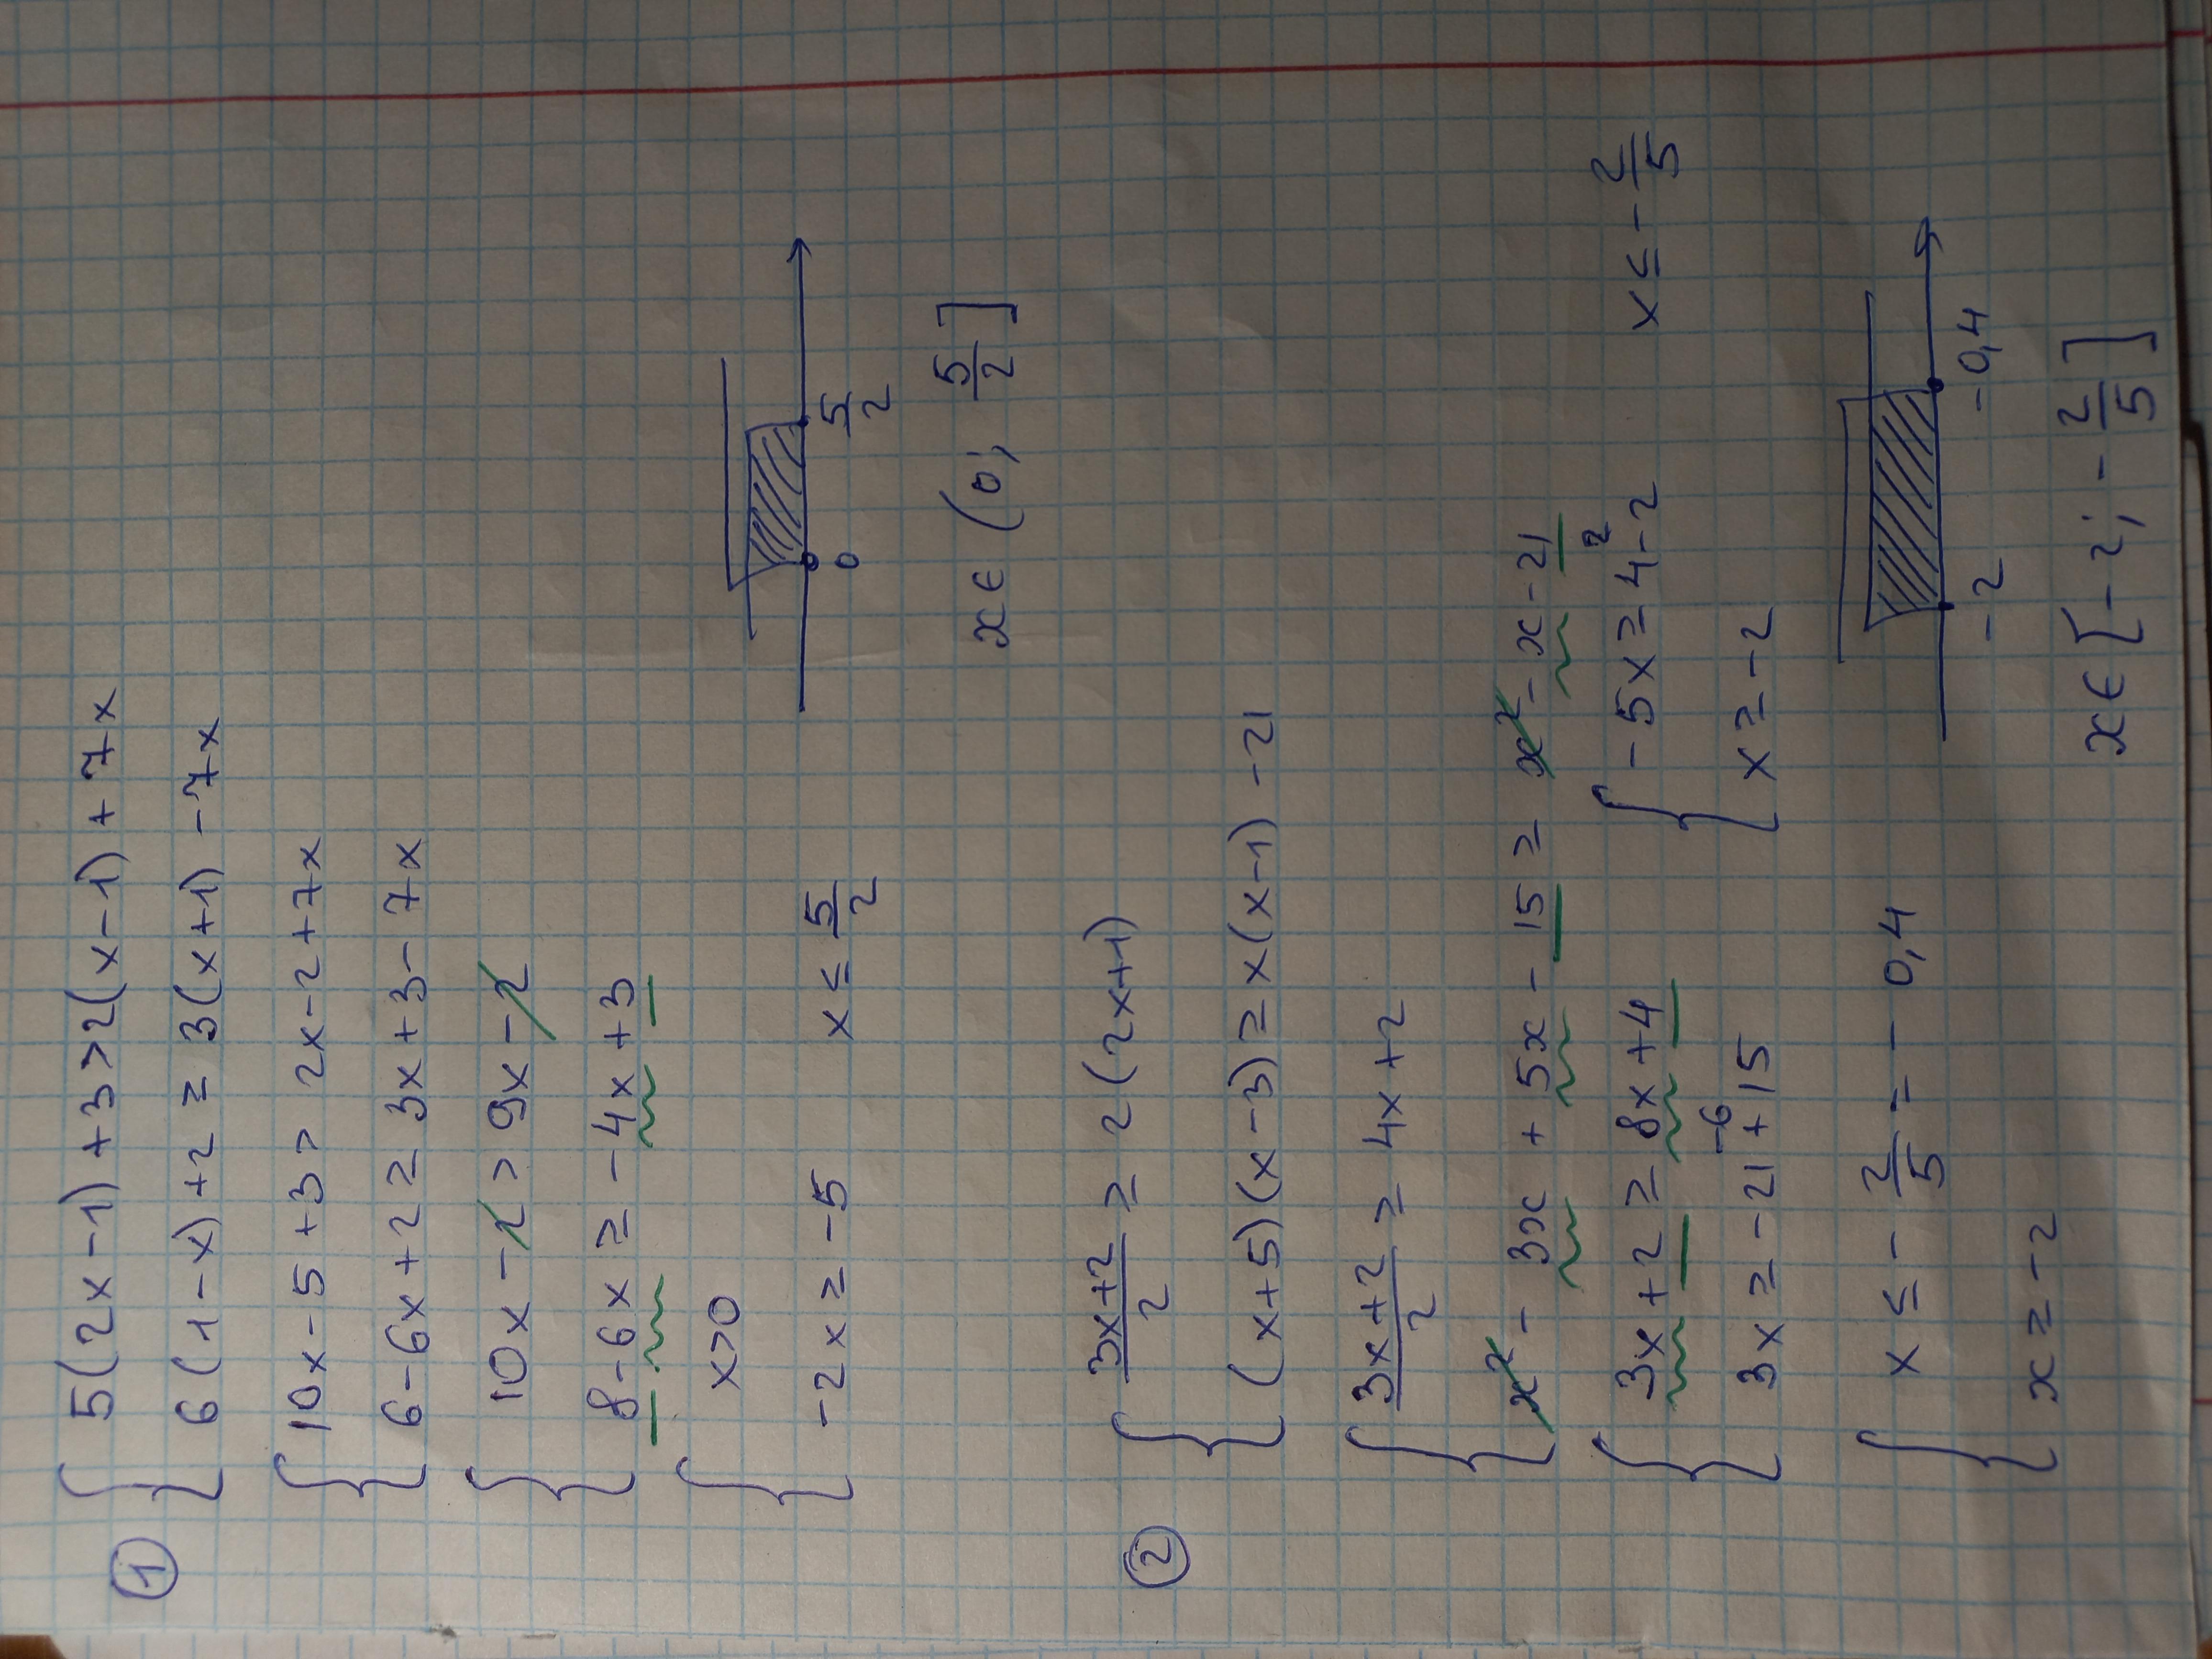 ① { 5(2x-1)+3>2(x-1)+7x
6(1-x)+2≥3(x+1)-7x
{ 10x-5+3>2x-2+7x
6-6x+2≥3x+3-7x
{ 10x-2>9x-2
8-6x≥-4x+3
{ x>0
-2x≥-5 x≤5/2
0 5/2
x∈(0; 5/2]
② { (3x+2)/2 ≥ 2(2x+1)
(x+5)(x-3)≥x(x-1)-21
{ (3x+2)/2 ≥ 4x+2
x²-3x+5x-15≥x²-x-21
{ 3x+2≥8x+4
3x≥-21+15 -6
{ -5x≥4-2 2 x≤-2/5
x≥-2
{ x≤-2/5=-0,4
x≥-2
-2 -0,4
x∈[-2; -2/5]